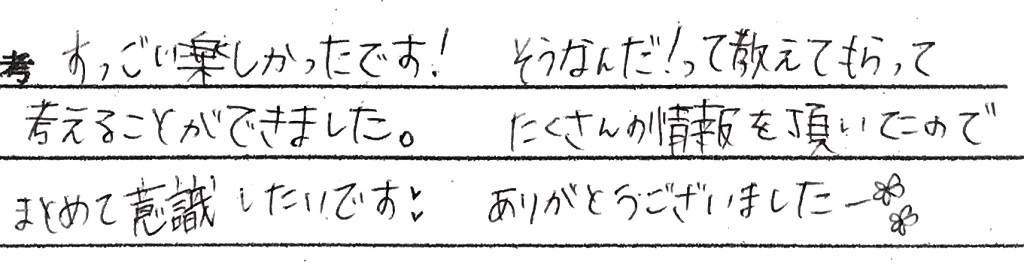 考 すっごい楽しかったです! そうなんだ!って教えてもらって
考えることができました。 たくさんの情報を頂いたので
まとめて意識したいです♥ ありがとうございましたー